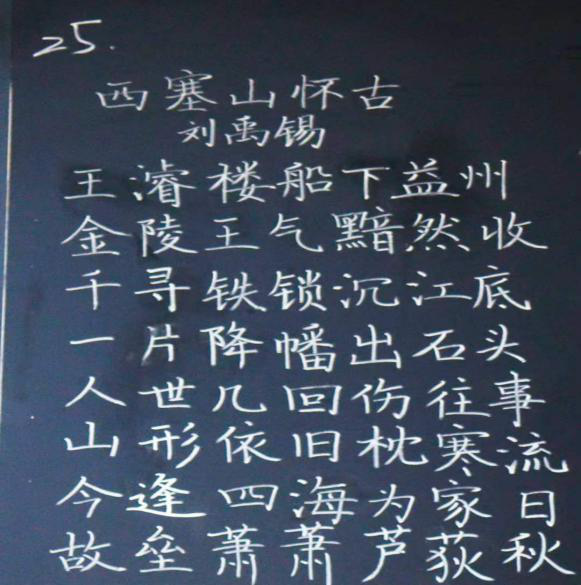 25.
西塞山怀古
刘禹锡
王濬楼船下益州
金陵王气黯然收
千寻铁锁沉江底
一片降幡出石头
人世几回伤往事
山形依旧枕寒流
今逢四海为家日
故垒萧萧芦荻秋